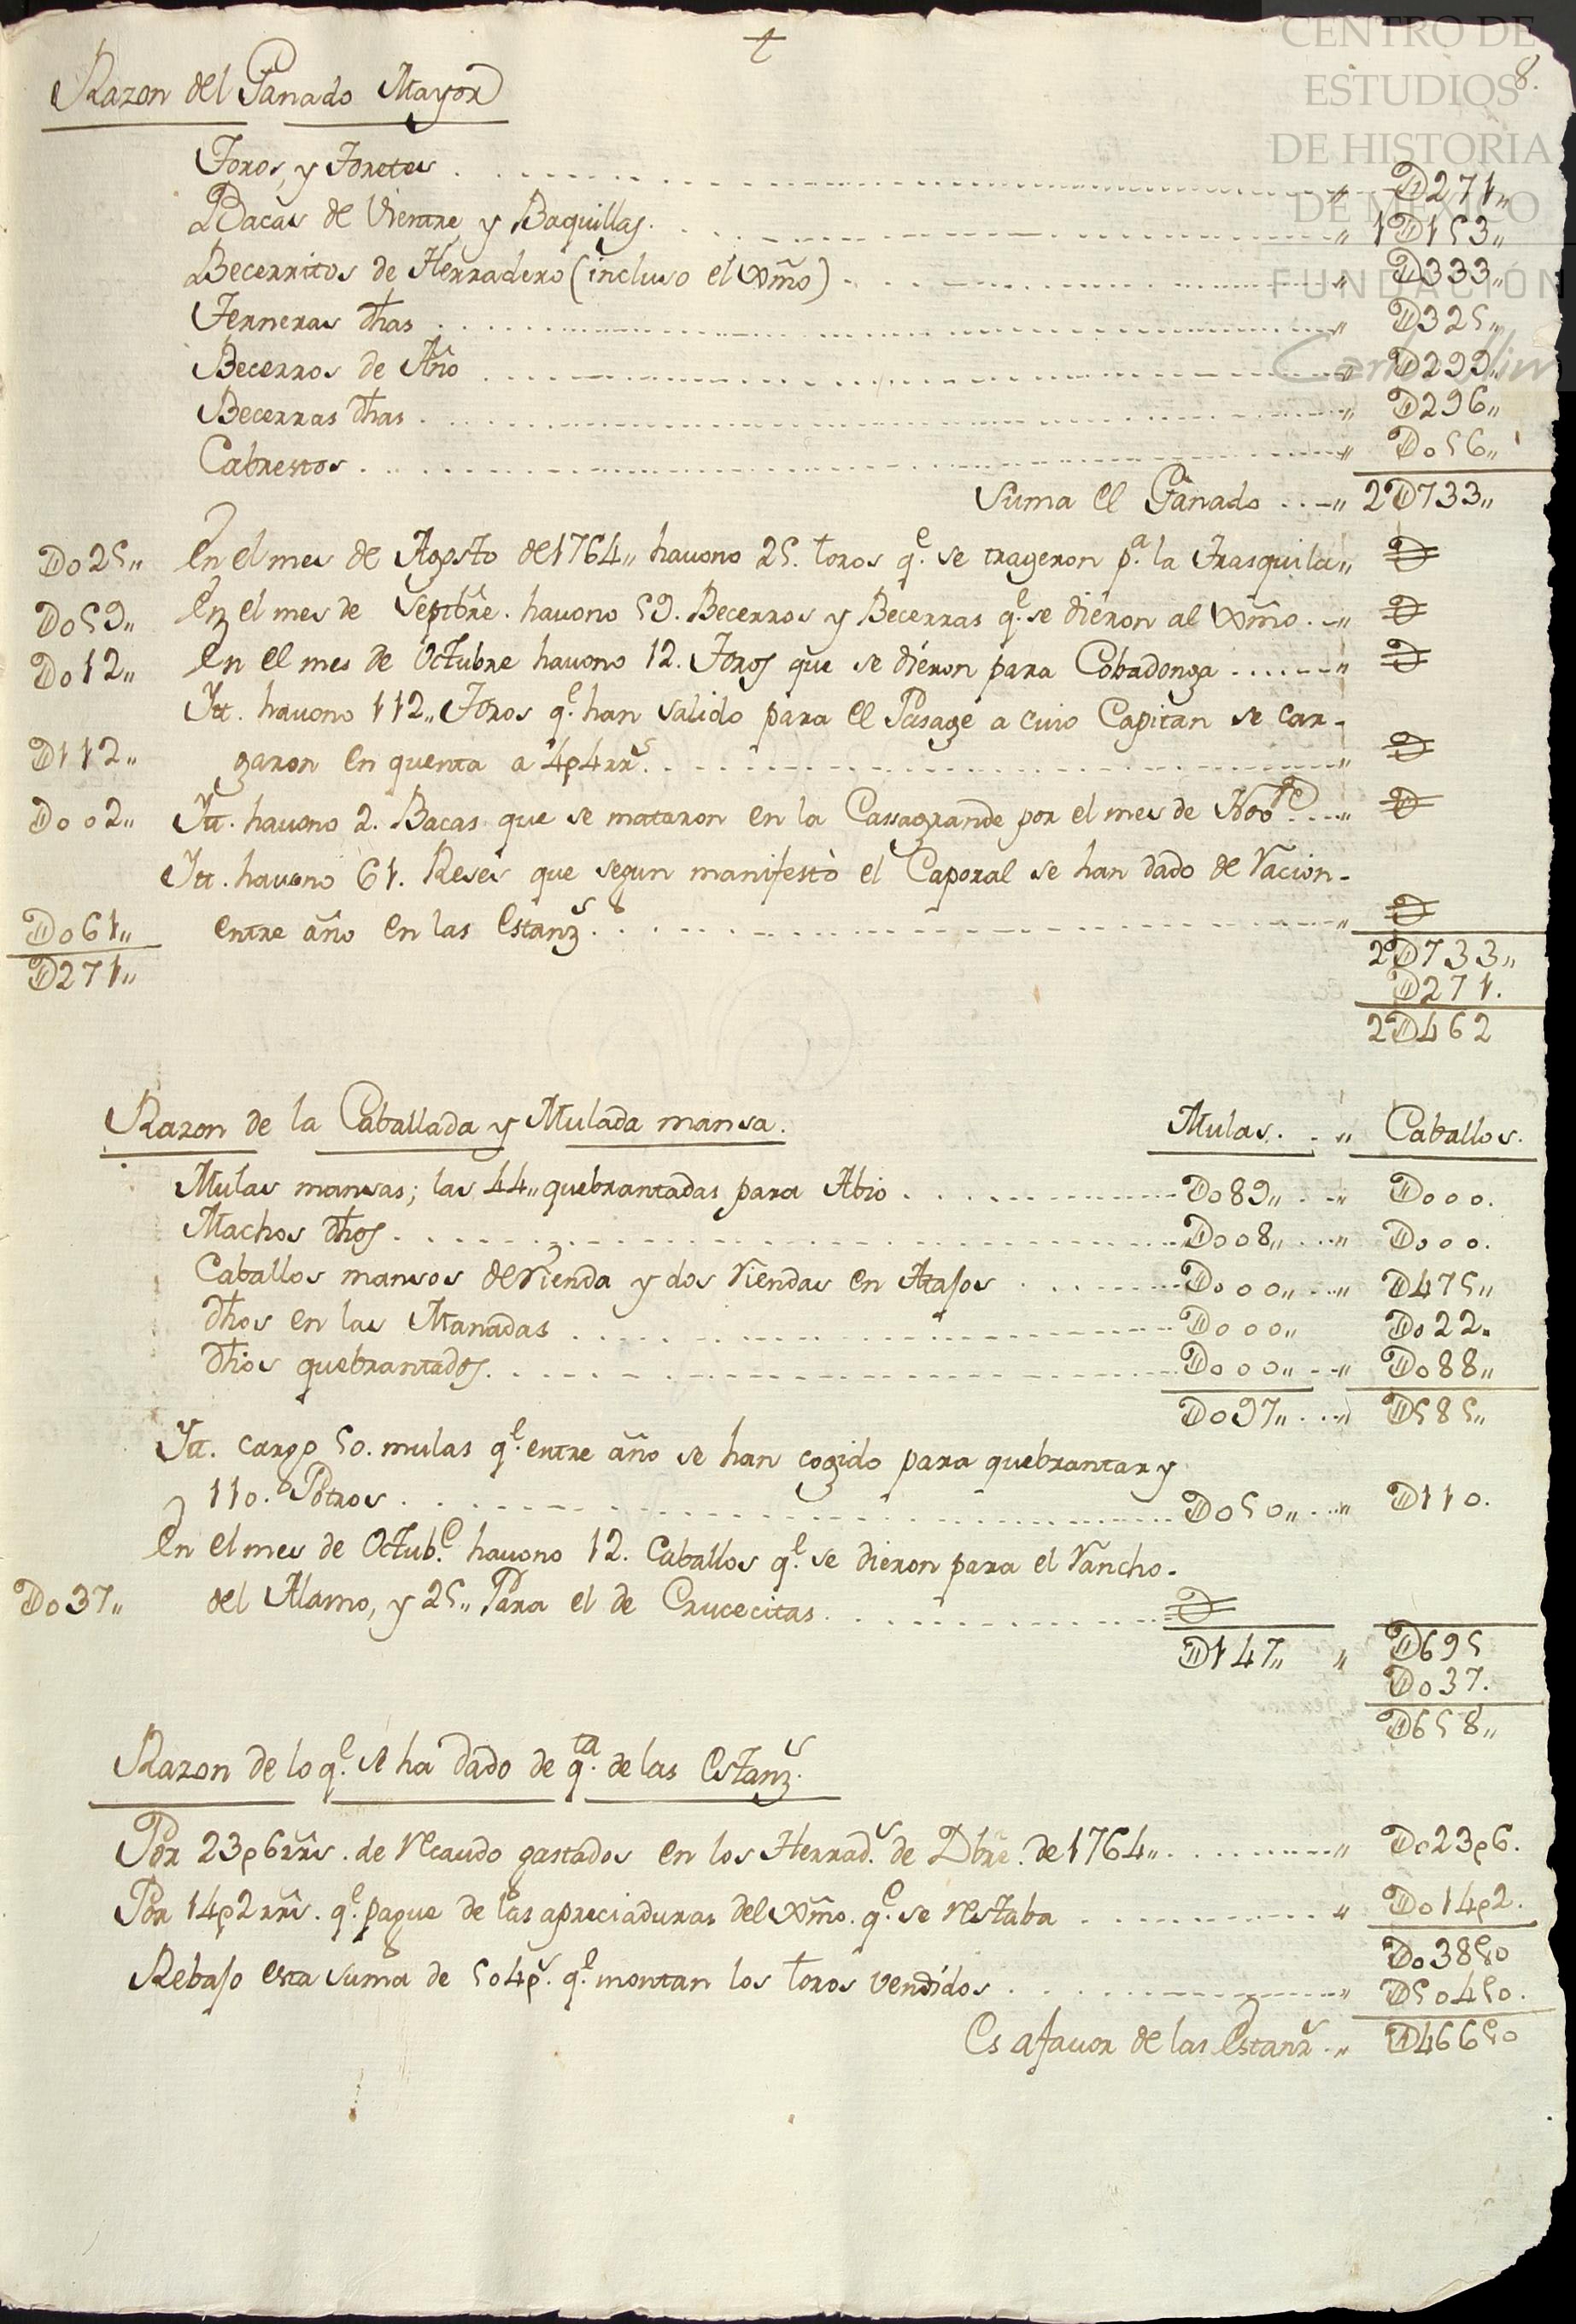 CENTRO DE
ESTUDIOS
DE HISTORIA
DE MÉXICO
FUNDACIÓN
Carlos Slim
8.
Razon del Ganado Mayor
Toros, y Toretes . . . . . . " D271"
Bacas de Vientre, y Baquillas . . . . . . " 1D153"
Becerritos de Herradero (incluso el Xm̃o) . . . . . . " D333"
Terneras dhas . . . . . . " D325"
Becerros de Año . . . . . . " D299"
Becerras dhas . . . . . . " D296"
Cabrestos . . . . . . " D056"
Suma el Ganado . . . " 2D733"
D025" En el mes de Agosto de 1764" havono 25. toros q.e se trageron p.a la Trasquila" D
D059" En el mes de Septbrê. havono 59. Becerros y Becerras q.e se dieron al Xm̃o. . " D
D012" En el mes de Octubre havono 12. Toros que se dieron para Cobadonga . . . . . . " D
Itt. havono 112" Toros q.e han salido para el Pasage a cuio Capitan se car-
D112" garon en quenta a 4p4rr.s . . . . . . " D
D002" Itt. havono 2. Bacas que se mataron en la Cassagrande por el mes de Nov.re . . . " D
Itt. havono 61. Reses que segun manifestò el Caporal se han dado de racion-
D061" entre año en las Estanz.s . . . . . . " D
D271" 2D733"
D271.
2D462
Razon de la Caballada y Mulada mansa. Mulas. . " Caballos.
Mulas mansas; las 44" quebrantadas para Abio . . . . . . D089" . . " D000.
Machos dhos . . . . . . D008" . . " D000.
Caballos mansos de rienda y dos riendas en Atajos . . . . . . D000" . . " D475"
Dhos en las Manadas . . . . . . D000" D022"
Dhos quebrantados . . . . . . D000" . . " D088"
D097" . . " D585"
Itt. cargo 50. mulas q.e entre año se han cogido para quebrantar y
110. Potros . . . . . . D050" . . " D110.
En el mes de Octub.e havono 12. Caballos q.e se dieron para el rancho-
D037" del Alamo, y 25" Para el de Crucecitas . . . . . . D
D147" " D695
D037.
D658"
Razon de lo q.e se ha dado de q.ta de las Estanz.s
Por 23p6rrs. de recaudo gastados en los Herrad.s de Dbrê. de 1764" . . . . . . " D023p6.
Por 14p2rrs. q.e pague de las apreciaduras del Xm̃o. q.e se restaba . . . . . . " D014p2.
D038p0
Rebajo esta suma de 504p.s q.e montan los toros vendidos . . . . . . " D504p0.
Es afavor de las Estanz.s . " D466p0